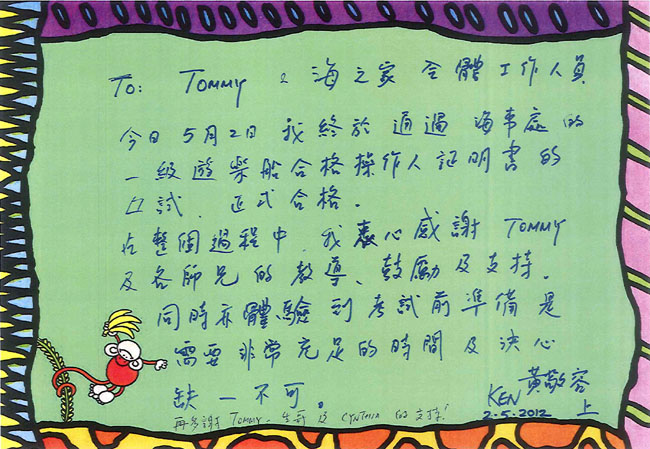 To: TOMMY & 海之家 全體工作人員
今日 5月2日 我終於 通過 海事處的
一級遊樂船合格操作人証明書的
口試、正式合格。
在整個過程中,我衷心感謝 TOMMY
及各師兄的教導、鼓勵及支持。
同時亦體驗到考試前準備是
需要非常充足的時間及決心
缺一不可。
KEN 黃敬容 上
2.5.2012
再多謝 TOMMY、生哥 及 CYNTHIA 的支持!